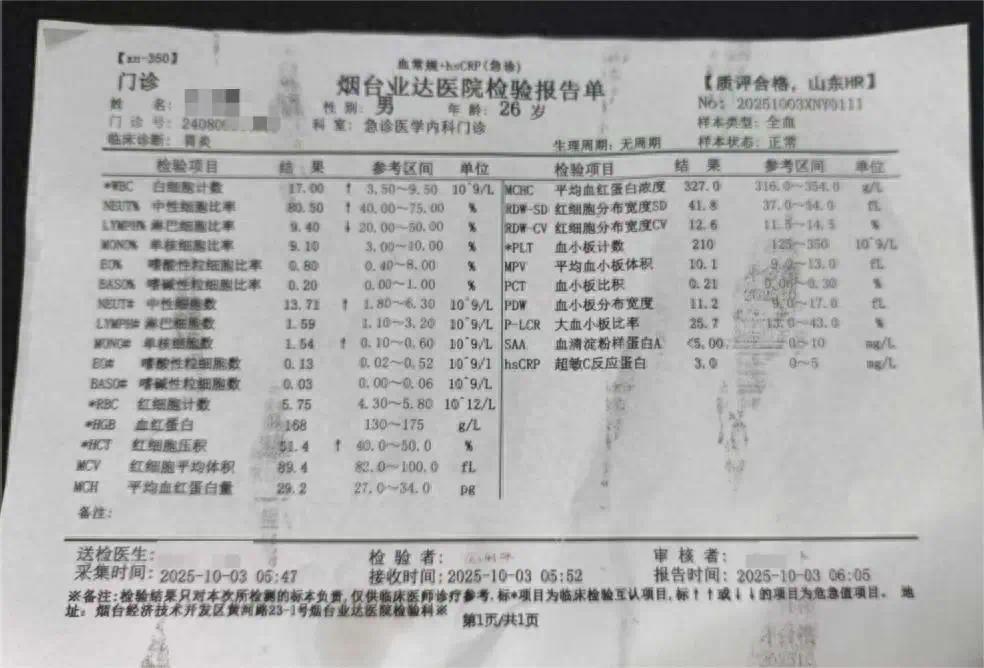 【xn-350】
血常规+hsCRP(急诊)
门诊
烟台业达医院检验报告单
【质评合格，山东HR】
姓 名：
性别：男
年龄：26 岁
No：20251003XNY0111
门诊号：24080
科室：急诊医学内科门诊
样本类型：全血
临床诊断：胃炎
生理周期：无周期
样本状态：正常
检验项目 结 果 参考区间 单位 检验项目 结 果 参考区间 单位
*WBC 白细胞计数 17.00 ↑ 3.50～9.50 10^9/L MCHC 平均血红蛋白浓度 327.0 316.0～354.0 g/L
NEUT% 中性细胞比率 80.50 ↑ 40.00～75.00 % RDW-SD 红细胞分布宽度SD 41.8 37.0～54.0 fL
LYMPH% 淋巴细胞比率 9.40 ↓ 20.00～50.00 % RDW-CV 红细胞分布宽度CV 12.6 11.5～14.5 %
MONO% 单核细胞比率 9.10 3.00～10.00 % *PLT 血小板计数 210 125～350 10^9/L
EO% 嗜酸性粒细胞比率 0.80 0.40～8.00 % MPV 平均血小板体积 10.1 9.0～13.0 fL
BASO% 嗜碱性粒细胞比率 0.20 0.00～1.00 % PCT 血小板比积 0.21 0.06～0.30 %
NEUT# 中性细胞数 13.71 ↑ 1.80～6.30 10^9/L PDW 血小板分布宽度 11.2 9.0～17.0 fL
LYMPH# 淋巴细胞数 1.59 1.10～3.20 10^9/L P-LCR 大血小板比率 25.7 13.0～43.0 %
MONO# 单核细胞数 1.54 ↑ 0.10～0.60 10^9/L SAA 血清淀粉样蛋白A <5.00 0～10 mg/L
EO# 嗜酸性粒细胞数 0.13 0.02～0.52 10^9/l hsCRP 超敏C反应蛋白 3.0 0～5 mg/L
BASO# 嗜碱性粒细胞数 0.03 0.00～0.06 10^9/L
*RBC 红细胞计数 5.75 4.30～5.80 10^12/L
*HGB 血红蛋白 168 130～175 g/L
*HCT 红细胞压积 51.4 ↑ 40.0～50.0 %
MCV 红细胞平均体积 89.4 82.0～100.0 fL
MCH 平均血红蛋白量 29.2 27.0～34.0 pg
备注：
送检医生：
检验者：
审核者：
采集时间：2025-10-03 05:47
接收时间：2025-10-03 05:52
报告时间：2025-10-03 06:05
※备注：检验结果只对本次所检测的标本负责，仅供临床医师诊疗参考，标*项目为临床检验互认项目，标↑↑或↓↓的项目为危急值项目。 地
址：烟台经济技术开发区黄河路23-1号烟台业达医院检验科※
第1页/共1页